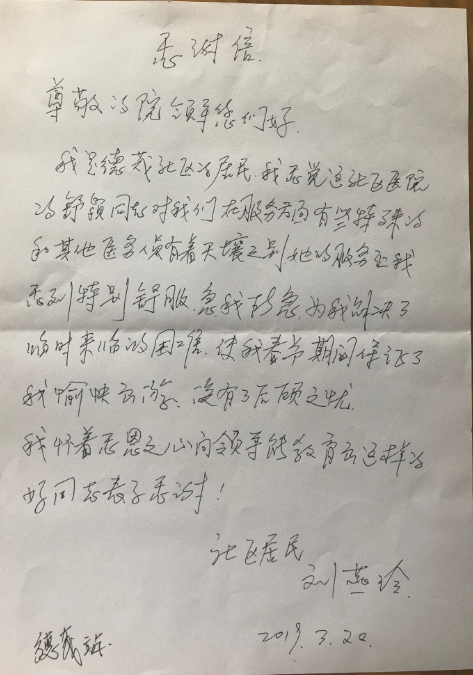 感谢信
尊敬的院领导您们好
我是德茂社区的居民,我感觉这社区医院
的舒颖同志对我们在服务方面有些特殊的
和其他医务人员有着天壤之别她的服务让我
感到特别舒服,急我所急,为我解决了
临时来临的困难,使我春节期间保证了
我愉快出游,没有了后顾之忧
我怀着感恩之心向领导能教育出这样的
好同志表示感谢!
社区居民
刘燕玲
2019.3.20
德茂站.